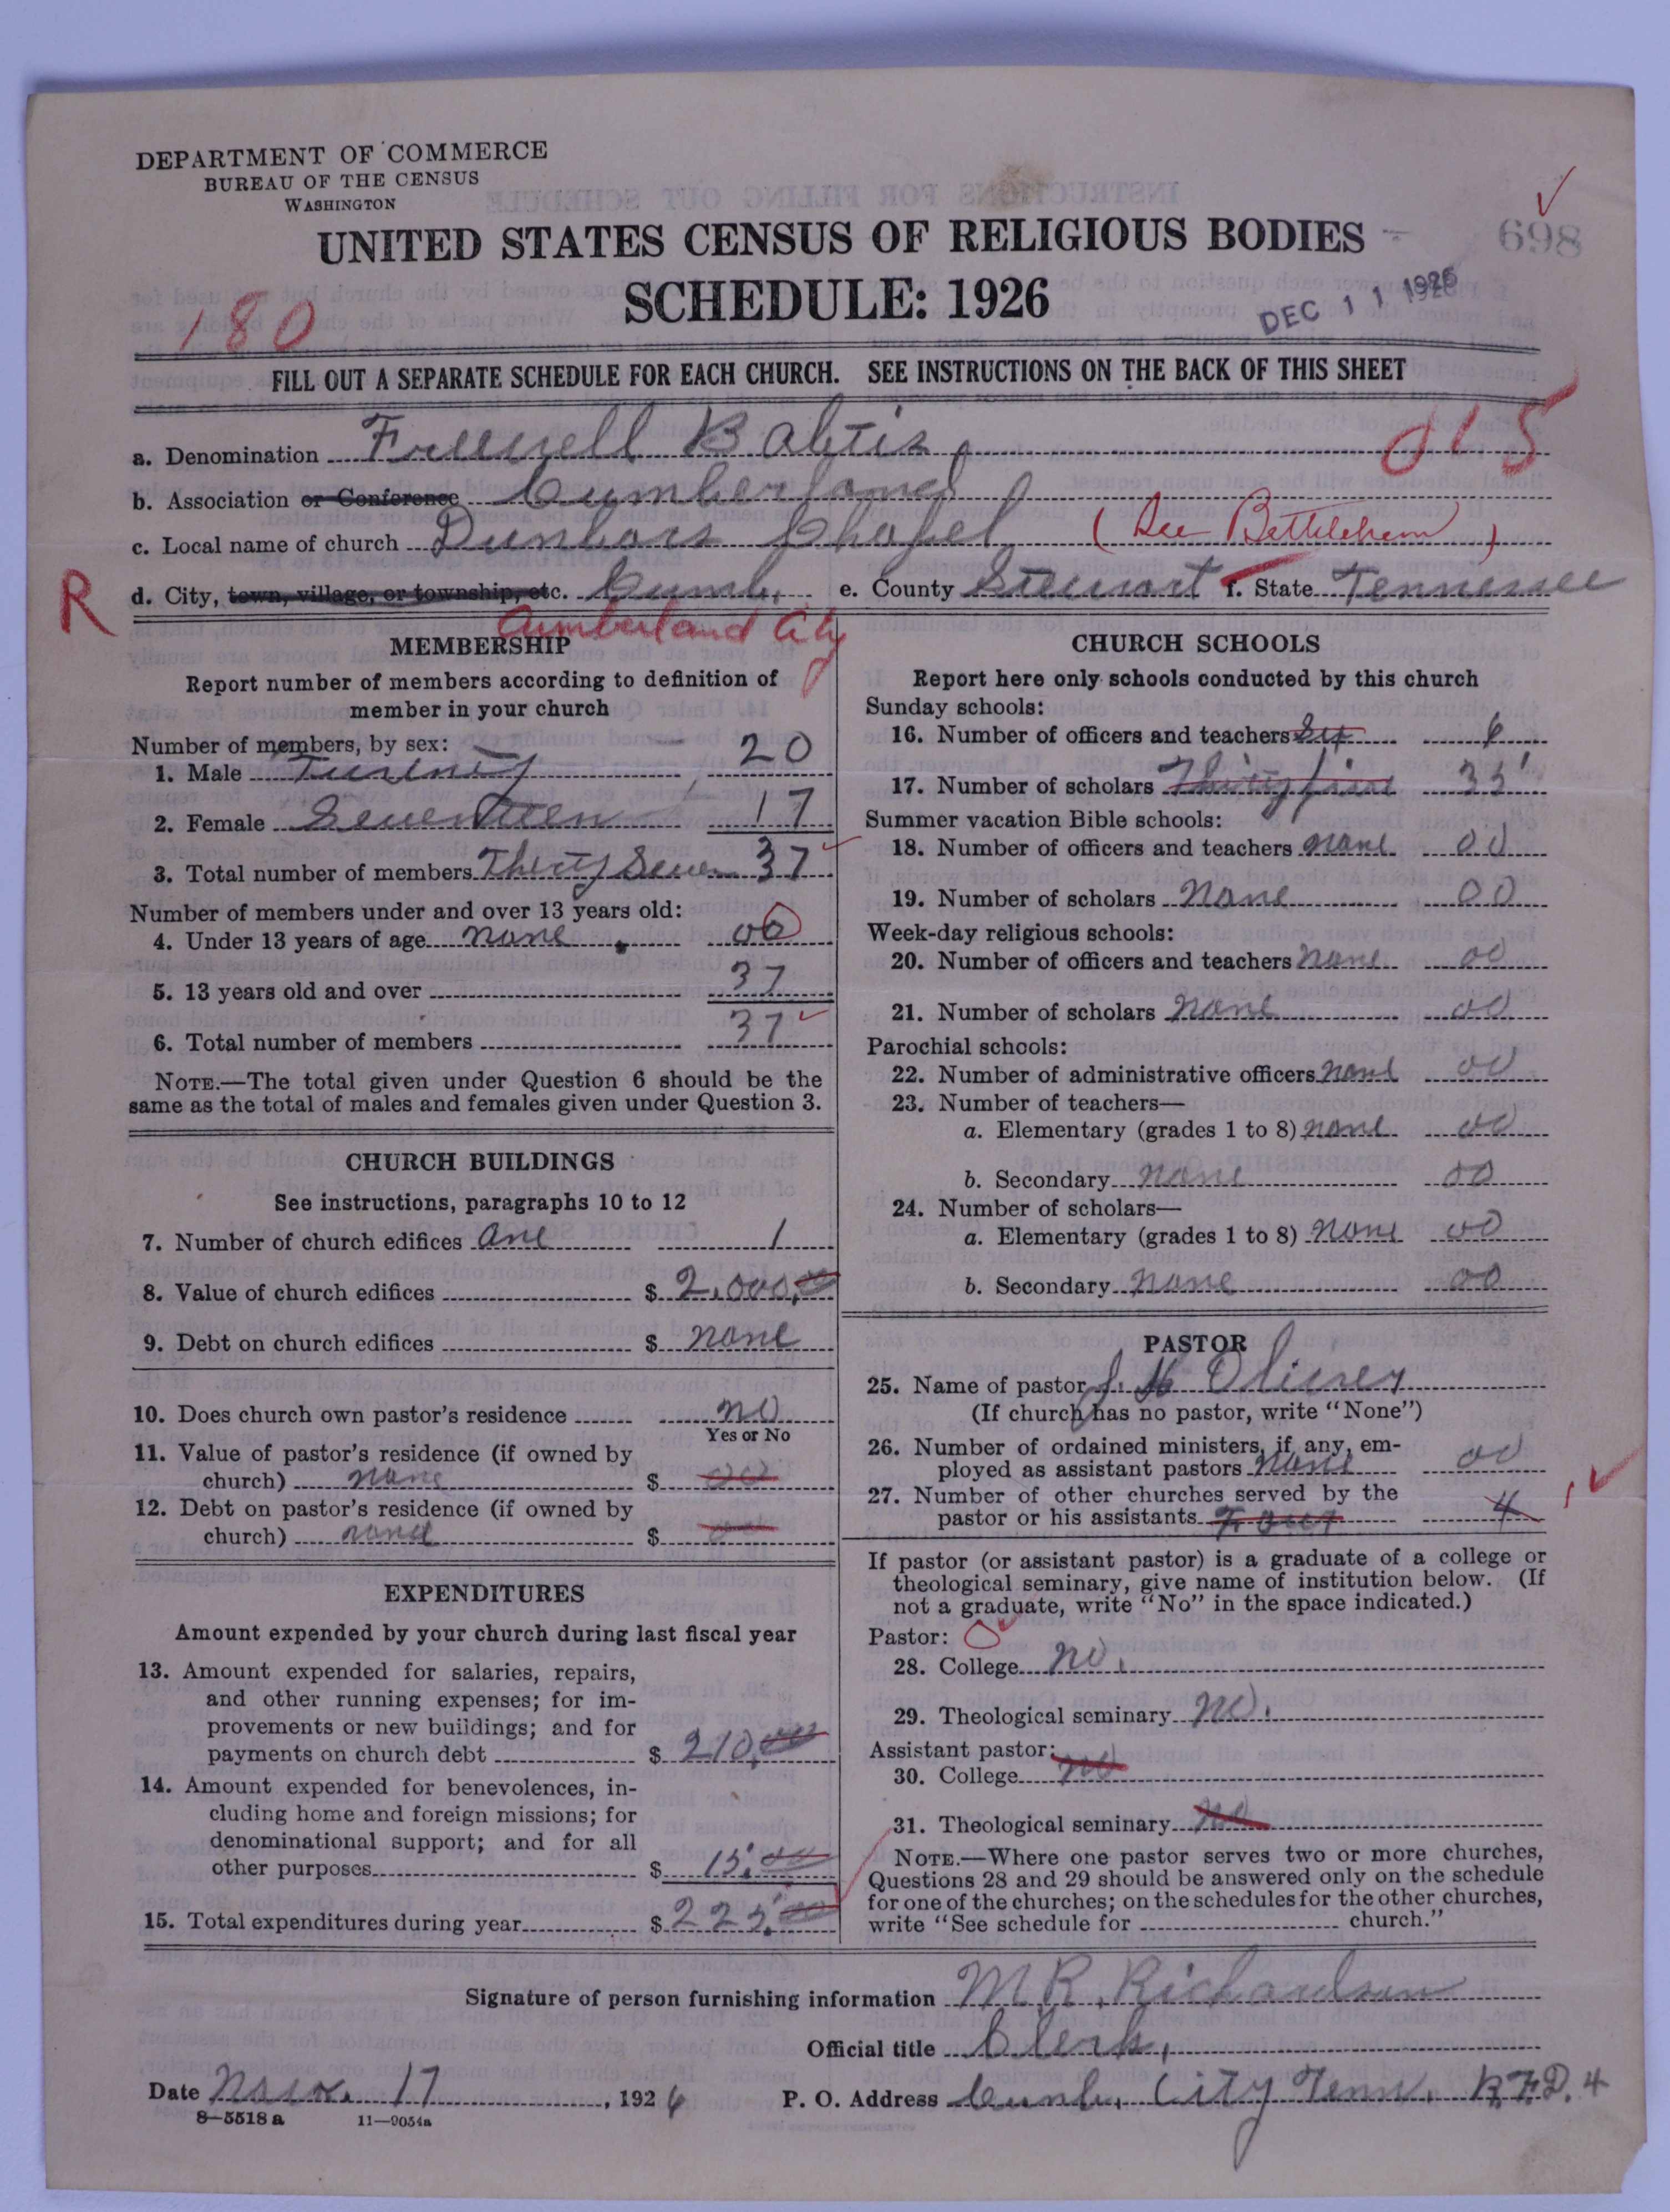 DEPARTMENT OF COMMERCE
BUREAU OF THE CENSUS
WASHINGTON
UNITED STATES CENSUS OF RELIGIOUS BODIES
698
SCHEDULE: 1926
DEC 11 1926
180
FILL OUT A SEPARATE SCHEDULE FOR EACH CHURCH. SEE INSTRUCTIONS ON THE BACK OF THIS SHEET
a. Denomination Freewell Babtis
015
b. Association or Conference Cumberland
c. Local name of church Dunbars Chapel (See Bethlehem)
R
d. City, town, village, or township, etc. Cumb. e. County Stewart f. State Tennessee
Cumberland City
MEMBERSHIP
Report number of members according to definition of
member in your church
Number of members, by sex:
1. Male Twenty 20
2. Female Seventeen 17
3. Total number of members Thirty Seven 37
Number of members under and over 13 years old:
4. Under 13 years of age none 00
5. 13 years old and over 37
6. Total number of members 37
NOTE.—The total given under Question 6 should be the
same as the total of males and females given under Question 3.
CHURCH BUILDINGS
See instructions, paragraphs 10 to 12
7. Number of church edifices one 1
8. Value of church edifices $ 2,000,00
9. Debt on church edifices $ none
10. Does church own pastor's residence no
Yes or No
11. Value of pastor's residence (if owned by
church) none $ 00
12. Debt on pastor's residence (if owned by
church) none $ 00
EXPENDITURES
Amount expended by your church during last fiscal year
13. Amount expended for salaries, repairs,
and other running expenses; for im-
provements or new buildings; and for
payments on church debt $ 210,00
14. Amount expended for benevolences, in-
cluding home and foreign missions; for
denominational support; and for all
other purposes $ 15.00
15. Total expenditures during year $ 225.00
CHURCH SCHOOLS
Report here only schools conducted by this church
Sunday schools:
16. Number of officers and teachers Six 6
17. Number of scholars Thirty five 35
Summer vacation Bible schools:
18. Number of officers and teachers none 00
19. Number of scholars none 00
Week-day religious schools:
20. Number of officers and teachers none 00
21. Number of scholars none 00
Parochial schools:
22. Number of administrative officers none 00
23. Number of teachers—
a. Elementary (grades 1 to 8) none 00
b. Secondary none 00
24. Number of scholars—
a. Elementary (grades 1 to 8) none 00
b. Secondary none 00
PASTOR
25. Name of pastor J. H. Oliver
(If church has no pastor, write "None")
26. Number of ordained ministers, if any, em-
ployed as assistant pastors none 00
27. Number of other churches served by the
pastor or his assistants Four 4
If pastor (or assistant pastor) is a graduate of a college or
theological seminary, give name of institution below. (If
not a graduate, write "No" in the space indicated.)
Pastor: 0
28. College no.
29. Theological seminary no.
Assistant pastor:
30. College no
31. Theological seminary no
NOTE.—Where one pastor serves two or more churches,
Questions 28 and 29 should be answered only on the schedule
for one of the churches; on the schedules for the other churches,
write "See schedule for church."
Signature of person furnishing information M R. Richardson
Official title Clerk,
Date Nov. 17, 1926 P. O. Address Cumb. City Tenn. R.F.D. 4
8—5518 a 11—9054a